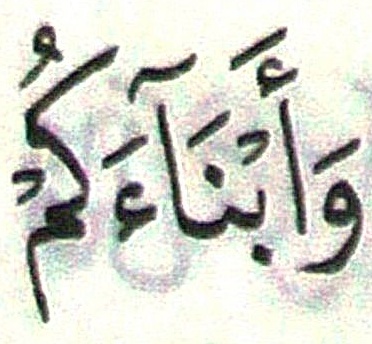 وَأَبْنَآءَكُمْ